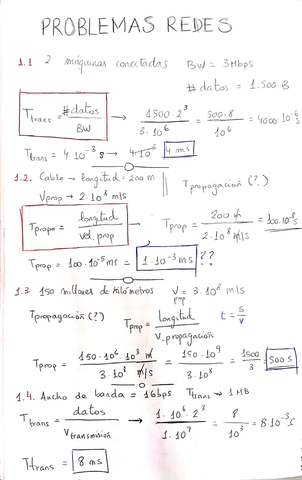 PROBLEMAS REDES
1.1 2 máquinas conectadas BW = 3Mbps
# datos = 1.500 B
Ttrans = #datos / BW → 1500·2³ / 3·10⁶ = 500·8 / 10⁶ = 4000·10⁻⁶ s
Ttrans = 4·10⁻³ s → 4·10⁻⁶ 4 ms
1.2. Cable → longitud = 200 m Tpropagación (?)
Vprop → 2·10⁸ m/s
Tpropa = longitud / vel. prop Tprop = 200 m / 2·10⁸ m/s = 100·10⁻⁸ s
Tprop = 100·10⁻⁵ ms = 1·10⁻³ ms ??
1.3. 150 millones de kilómetros Vprop = 3·10⁸ m/s
Tpropagación (?) Tprop = longitud / v.propagación t = s/v
Tprop = 150·10⁶·10³ m / 3·10⁸ m/s = 150·10⁹ / 3·10⁸ = 1500/3 = 500 s
1.4. Ancho de banda = 1Gbps Ttrans → 1 MB
Ttrans = datos / Vtransmisión → 1·10⁶·2³ / 1·10⁹ = 8 / 10³ = 8·10⁻³ s
Ttrans = 8 ms